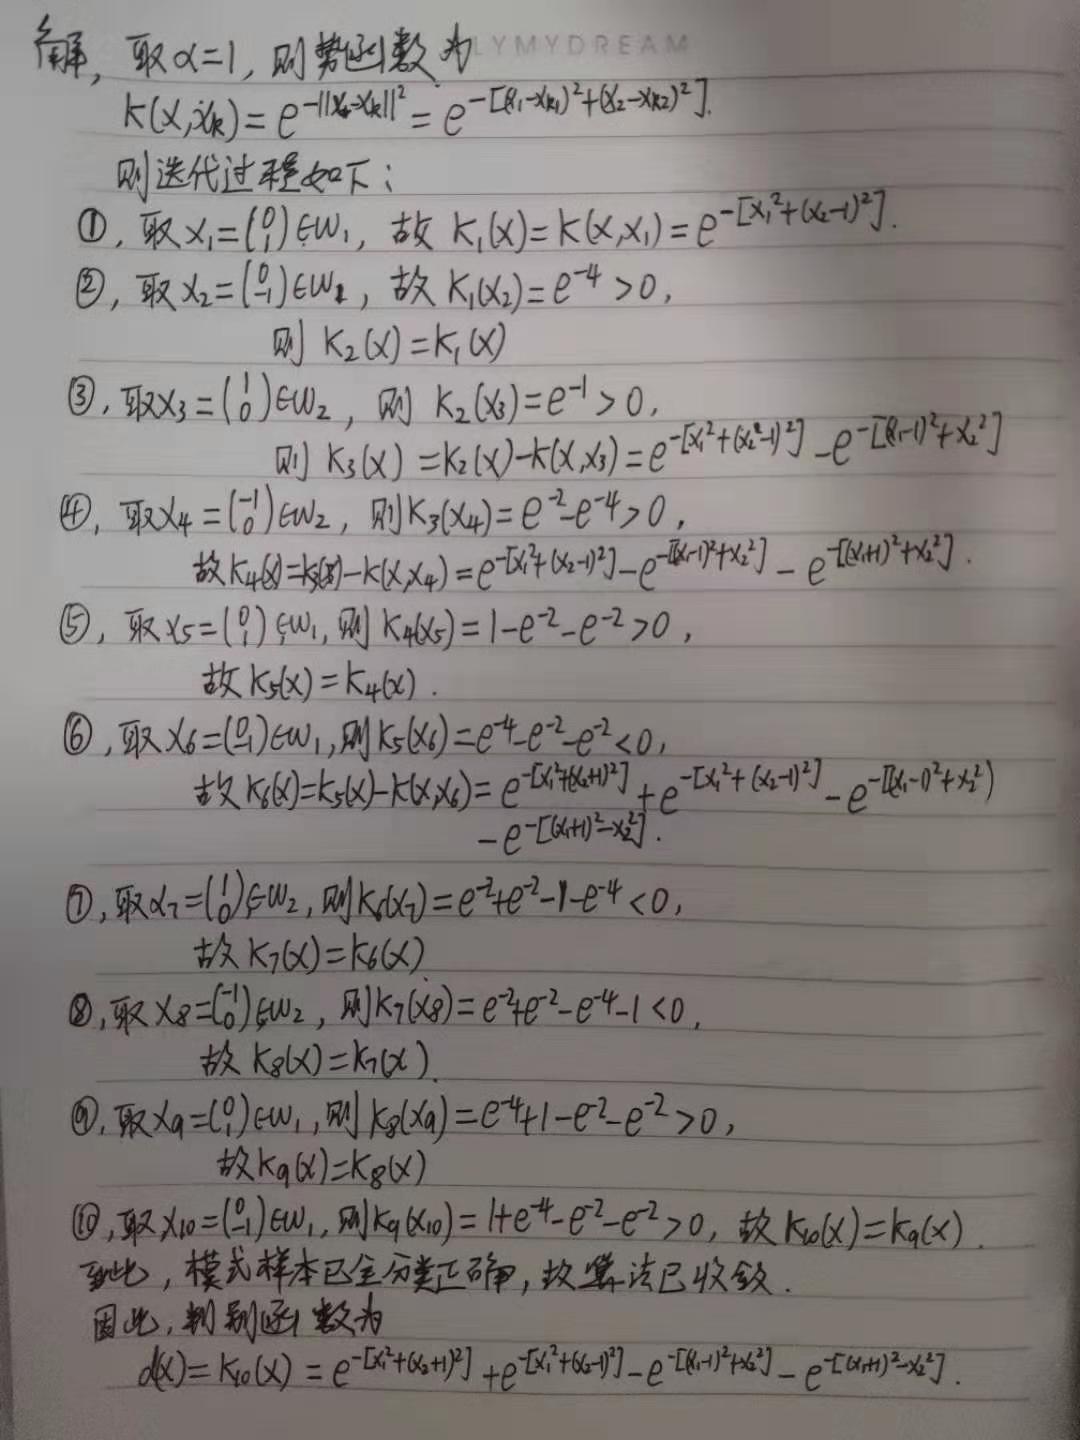 LYMYDREAM
解, 取α=1, 则势函数为
K(x,x_k)=e^{-||x-x_k||²}=e^{-[(x₁-x_{k1})²+(x₂-x_{k2})²]}.
则迭代过程如下:
①, 取x₁=(0 1)∈W₁, 故 K₁(x)=K(x,x₁)=e^{-[x₁²+(x₂-1)²]}.
②, 取x₂=(0 -1)∈W₁, 故K₁(x₂)=e^{-4}>0,
则 K₂(x)=K₁(x)
③, 取x₃=(1 0)∈W₂, 则 K₂(x₃)=e^{-1}>0,
则 K₃(x)=K₂(x)-K(x,x₃)=e^{-[x₁²+(x₂-1)²]}-e^{-[(x₁-1)²+x₂²]}
④, 取x₄=(-1 0)∈W₂, 则K₃(x₄)=e^{-2}-e^{-4}>0,
故K₄(x)=K₃(x)-K(x,x₄)=e^{-[x₁²+(x₂-1)²]}-e^{-[(x₁-1)²+x₂²]}-e^{-[(x₁+1)²+x₂²]}.
⑤, 取x₅=(0 1)∈W₁, 则K₄(x₅)=1-e^{-2}-e^{-2}>0,
故K₅(x)=K₄(x).
⑥, 取x₆=(0 -1)∈W₁, 则K₅(x₆)=e^{-4}-e^{-2}-e^{-2}<0,
故K₆(x)=K₅(x)-K(x,x₆)=e^{-[x₁²+(x₂+1)²]}+e^{-[x₁²+(x₂-1)²]}-e^{-[(x₁-1)²+x₂²)}
-e^{-[(x₁+1)²-x₂²]}.
⑦, 取x₇=(1 0)∈W₂, 则K₆(x₇)=e^{-2}+e^{-2}-1-e^{-4}<0,
故K₇(x)=K₆(x)
⑧, 取x₈=(-1 0)∈W₂, 则K₇(x₈)=e^{-2}+e^{-2}-e^{-4}-1<0,
故K₈(x)=K₇(x)
⑨, 取x₉=(0 1)∈W₁, 则K₈(x₉)=e^{-4}+1-e^{-2}-e^{-2}>0,
故K₉(x)=K₈(x)
⑩, 取x₁₀=(0 -1)∈W₁, 则K₉(x₁₀)=1+e^{-4}-e^{-2}-e^{-2}>0, 故K₁₀(x)=K₉(x).
到此, 模式样本已全分类正确, 故算法已收敛.
因此, 判别函数为
d(x)=K₁₀(x)=e^{-[x₁²+(x₂+1)²]}+e^{-[x₁²+(x₂-1)²]}-e^{-[(x₁-1)²+x₂²]}-e^{-[(x₁+1)²-x₂²]}.